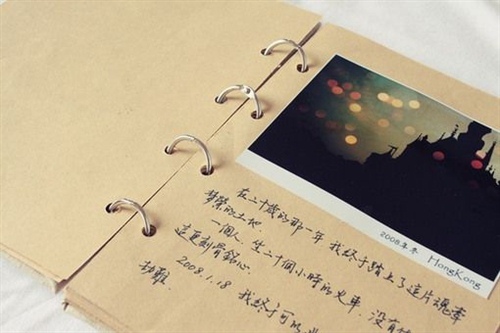 2008年冬 HongKong
在二十歲的那一年 我终于踏上了這片魂牽
梦萦的土地.
一個人. 坐二十個小時的火車. 没有
這是刻骨銘心.
劫難.
2008.1.18
我终于可